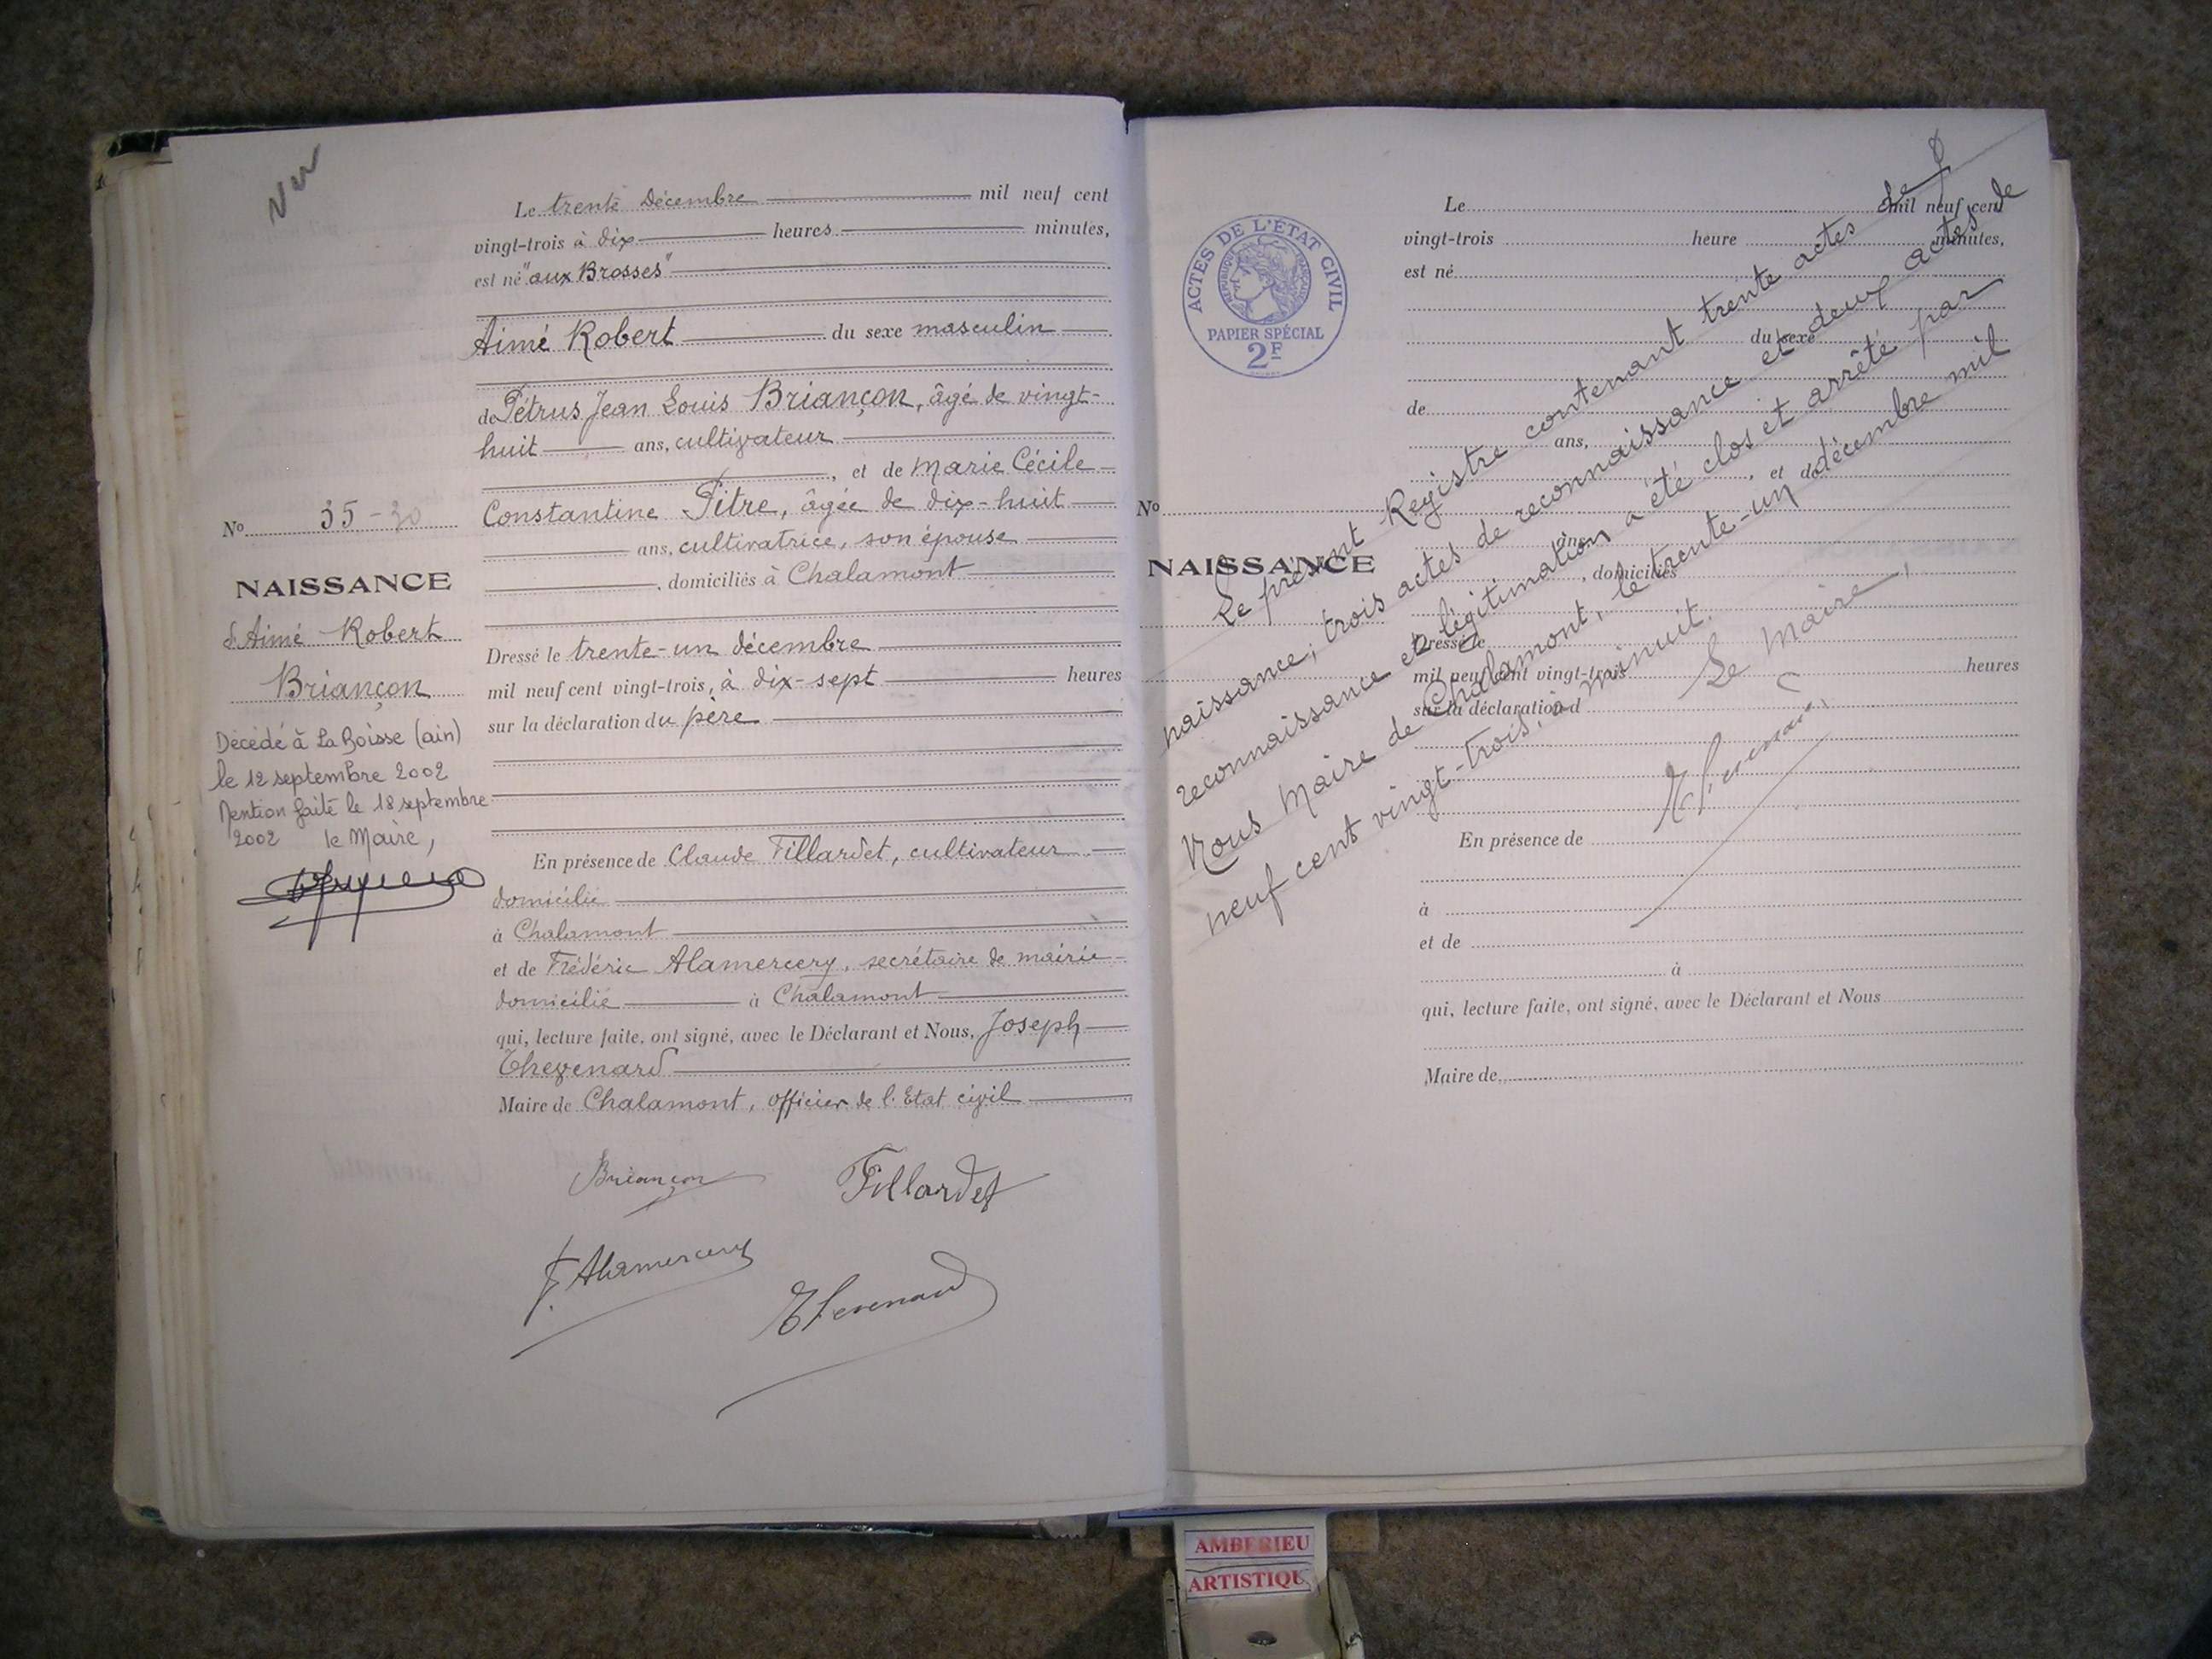 Vu
Le trente Décembre mil neuf cent
vingt-trois à dix heures minutes,
est né "aux Brosses"
Aimé Robert du sexe masculin
de Pétrus Jean Louis Briançon, âgé de vingt-
huit ans, cultivateur
, et de Marie Cécile
Constantine Pitre, âgée de dix-huit
ans, cultivatrice, son épouse
, domiciliés à Chalamont
Dressé le trente-un décembre
mil neuf cent vingt-trois, à dix-sept heures
sur la déclaration du père
En présence de Claude Fillardet, cultivateur
domicilié
à Chalamont
et de Frédéric Alamercery, secrétaire de mairie
domicilié à Chalamont
qui, lecture faite, ont signé, avec le Déclarant et Nous, Joseph
Thevenard
Maire de Chalamont, officier de l'Etat civil
Briançon Fillardet
F. Alamercery
Thevenard
No 35-30
NAISSANCE
d'Aimé Robert
Briançon
Décédé à La Boisse (ain)
le 12 septembre 2002
Mention faite le 18 septembre
2002 le Maire,
ACTES DE L'ÉTAT CIVIL
RÉPUBLIQUE FRANÇAISE
PAPIER SPÉCIAL
2F
No
NAISSANCE
Le mil neuf cent
vingt-trois heure minutes,
est né
du sexe
de
ans,
, et de
ans,
, domiciliés
Dressé le
mil neuf cent vingt-trois heures
sur la déclaration d
En présence de
à
et de
à
qui, lecture faite, ont signé, avec le Déclarant et Nous
Maire de
Le présent Registre contenant trente actes de
naissance, trois actes de reconnaissance et deux actes de
reconnaissance et légitimation a été clos et arrêté par
Nous Maire de Chalamont, le trente-un décembre mil
neuf cent vingt-trois, à minuit.
Le Maire,
Thevenard
AMBERIEU
ARTISTIQU